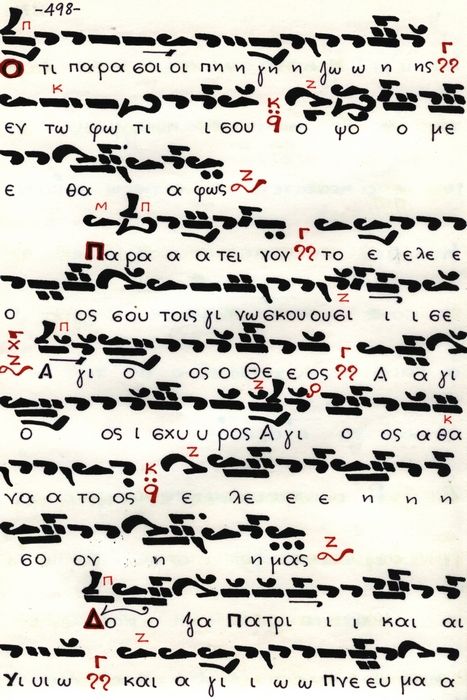 -498-
Ο τι παρα σοι οι πη η γη η ζω ω η ης
εν τω φω τι ι σου ο ψο ο με
ε θα α φως
Παρα α α τει νον το ε ελε ε
ο ος σου τοις γι νω σκου ουσι ι ι σε
Α γι ο ος ο Θε ε ος Α α γι
ο ος ι σχυ υ ρος Α γι ο ος α θα
να α το ος ε λε ε ε η η η
σο ον η η μας
Δο ο ξα Πατρι ι και αι
Υι υι ω και α γι ι ω ω Πνε ευ μα α